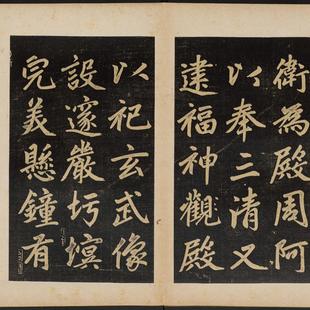 衛為殿周阿
以奉三清又
建福神觀殿
以祀玄武像
設邃嚴圬墁
完美懸鐘有